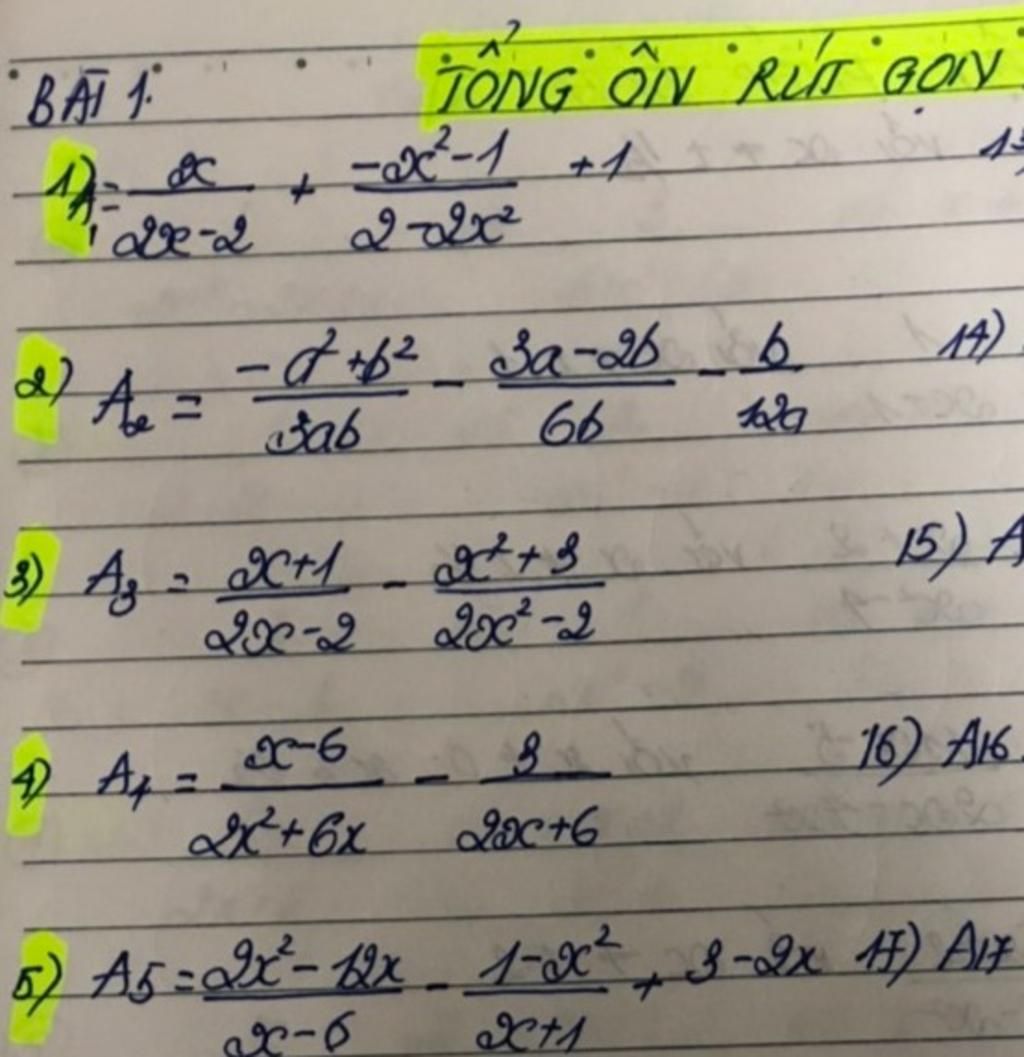 BÀI 1. TỔNG ÔN RÚT GỌN
1) A₁ = x/(2x-2) + (-x²-1)/(2-2x²) + 1
2) A₂ = (-a²+b²)/(3ab) - (3a-2b)/(6b) - b/(12a) 14)
3) A₃ = (x+1)/(2x-2) - (x²+3)/(2x²-2) 15) A
4) A₄ = (x-6)/(2x²+6x) - 3/(2x+6) 16) A16
5) A5 = (2x²-12x)/(x-6) - (1-x²)/(x+1) + 3-2x 17) A17